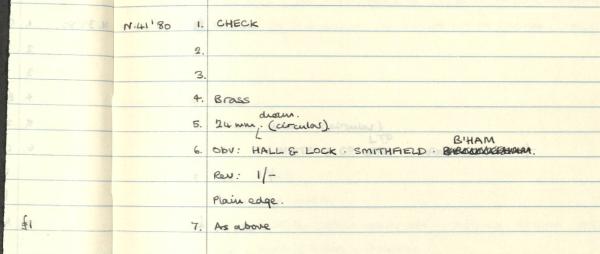 N.41'80 1. CHECK
2.
3.
4. Brass
5. 24mm. diam. (circular)
6. Obv: HALL & LOCK · SMITHFIELD · B'HAM
Rev: 1/-
Plain edge.
£1 7. As above